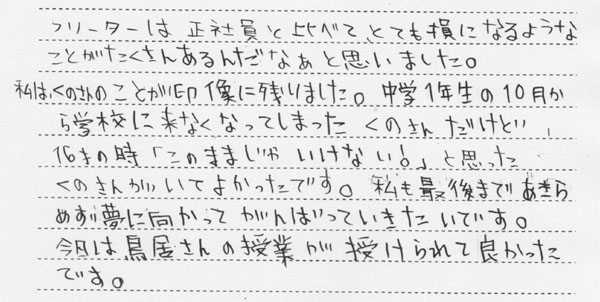 フリーターは正社員と比べて、とても損になるような
ことがたくさんあるんだなぁと思いました。
私は、くのさんのことが印像に残りました。中学1年生の10月か
ら学校に来なくなってしまったくのさんだけど、
16才の時「このままじゃいけない!」と思った
くのさんがいてよかったです。私も最後まであきら
めず夢に向かってがんばっていきたいです。
今日は鳥居さんの授業が受けられて良かった
です。